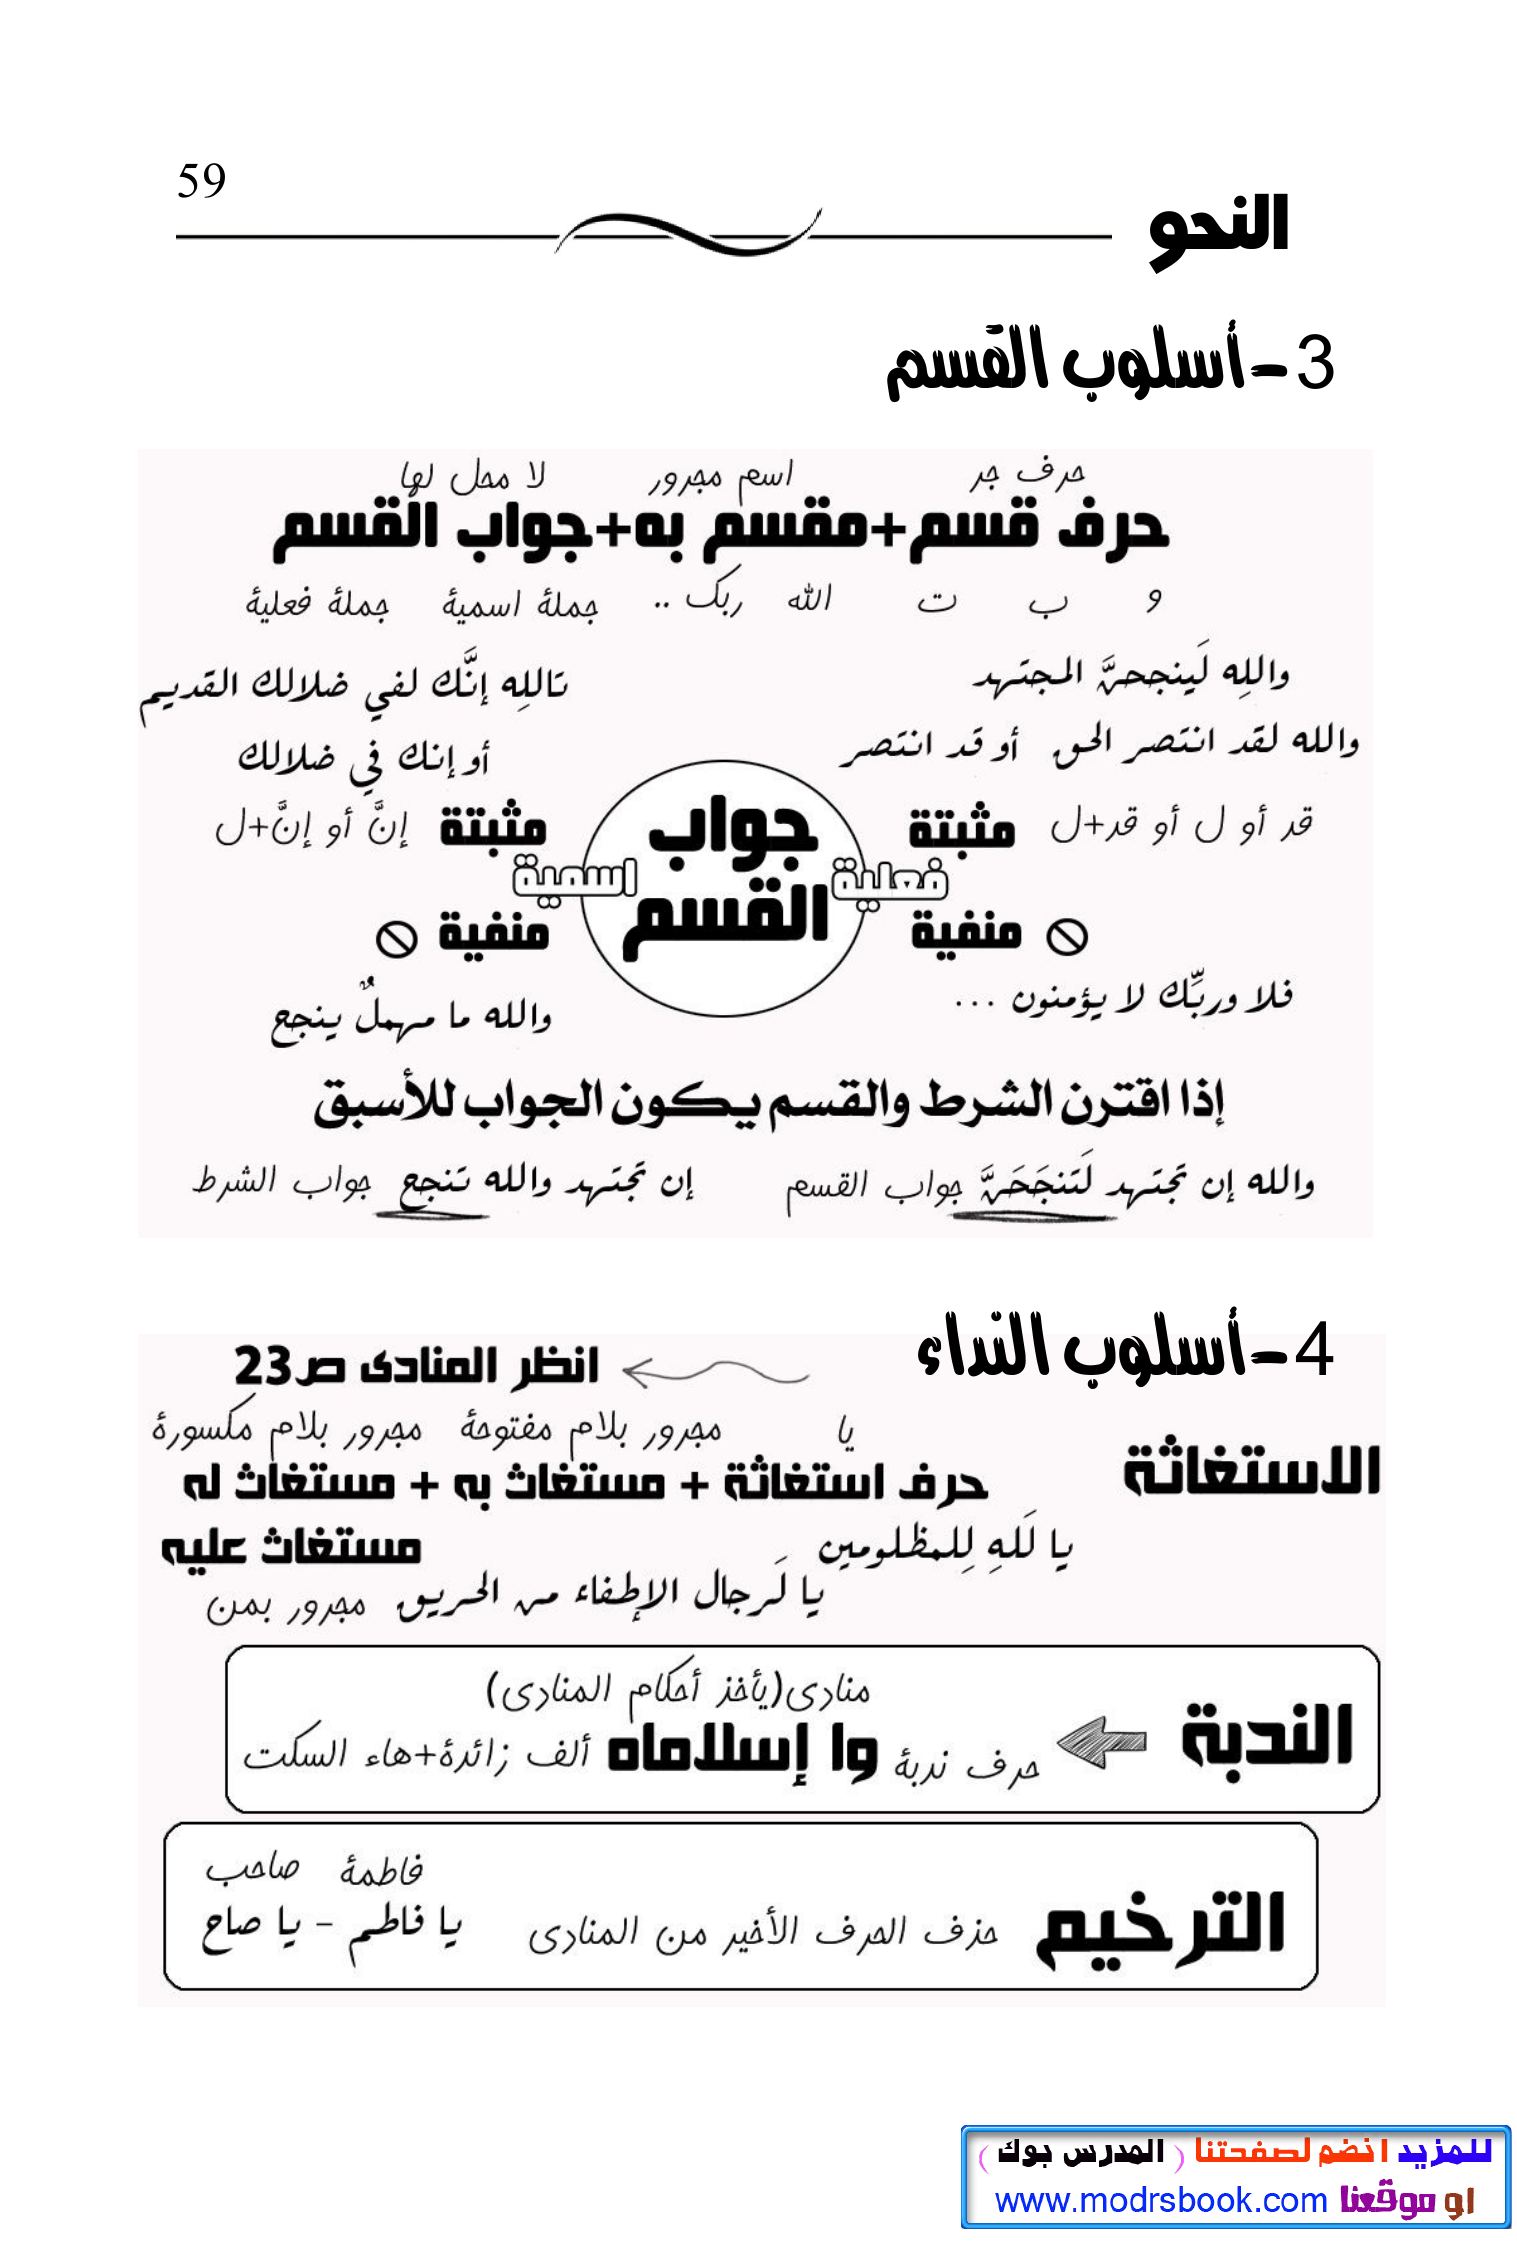 59
النحو
3-أسلوب القسم
حرف جر اسم مجرور لا محل لها
حرف قسم+مقسم به+جواب القسم
و ب ت الله ربك .. جملة اسمية جملة فعلية
والله لَينجحنَّ المجتهد
تاللِه إنَّك لفي ضلالك القديم
والله لقد انتصر الحق أو قد انتصر
أو إنك في ضلالك
قد أو ل أو قد+ل
مثبتة
مثبتة
إنَّ أو إنَّ+ل
جواب
القسم
فعلية
اسمية
منفية
منفية
فلا وربِّك لا يؤمنون ...
والله ما مهملٌ ينجح
إذا اقترن الشرط والقسم يكون الجواب للأسبق
والله إن تجتهد لَتَنجَحَنَّ جواب القسم
إن تجتهد والله تنجح جواب الشرط
4-أسلوب النداء
انظر المنادى ص23
يا مجرور بلام مفتوحة مجرور بلام مكسورة
الاستغاثة
حرف استغاثة + مستغاث به + مستغاث له
يا لَلهِ لِلمظلومين
مستغاث عليه
يا لَرجال الإطفاء من الحريق مجرور بمن
منادى(يأخذ أحكام المنادى)
الندبة
حرف ندبة وا إسلاماه ألف زائدة+هاء السكت
فاطمة صاحب
الترخيم
حذف الحرف الأخير من المنادى
يا فاطم - يا صاح
للمزيد انضم لصفحتنا ( المدرس بوك )
او موقعنا www.modrsbook.com